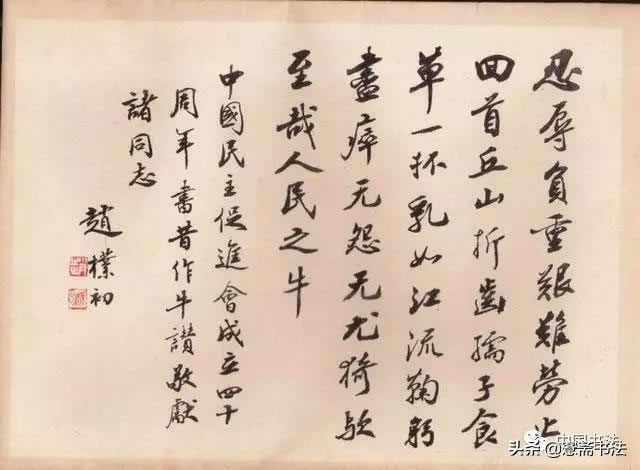 忍辱負重艱難勞止
回首丘山折齒孺子食
草一杯乳如江流鞠躬
盡瘁无怨无尤猗欤
至哉人民之牛
中國民主促進會成立四十
周年書昔作牛讃敬獻
諸同志
趙樸初
中国书法
头条@慧斋书法